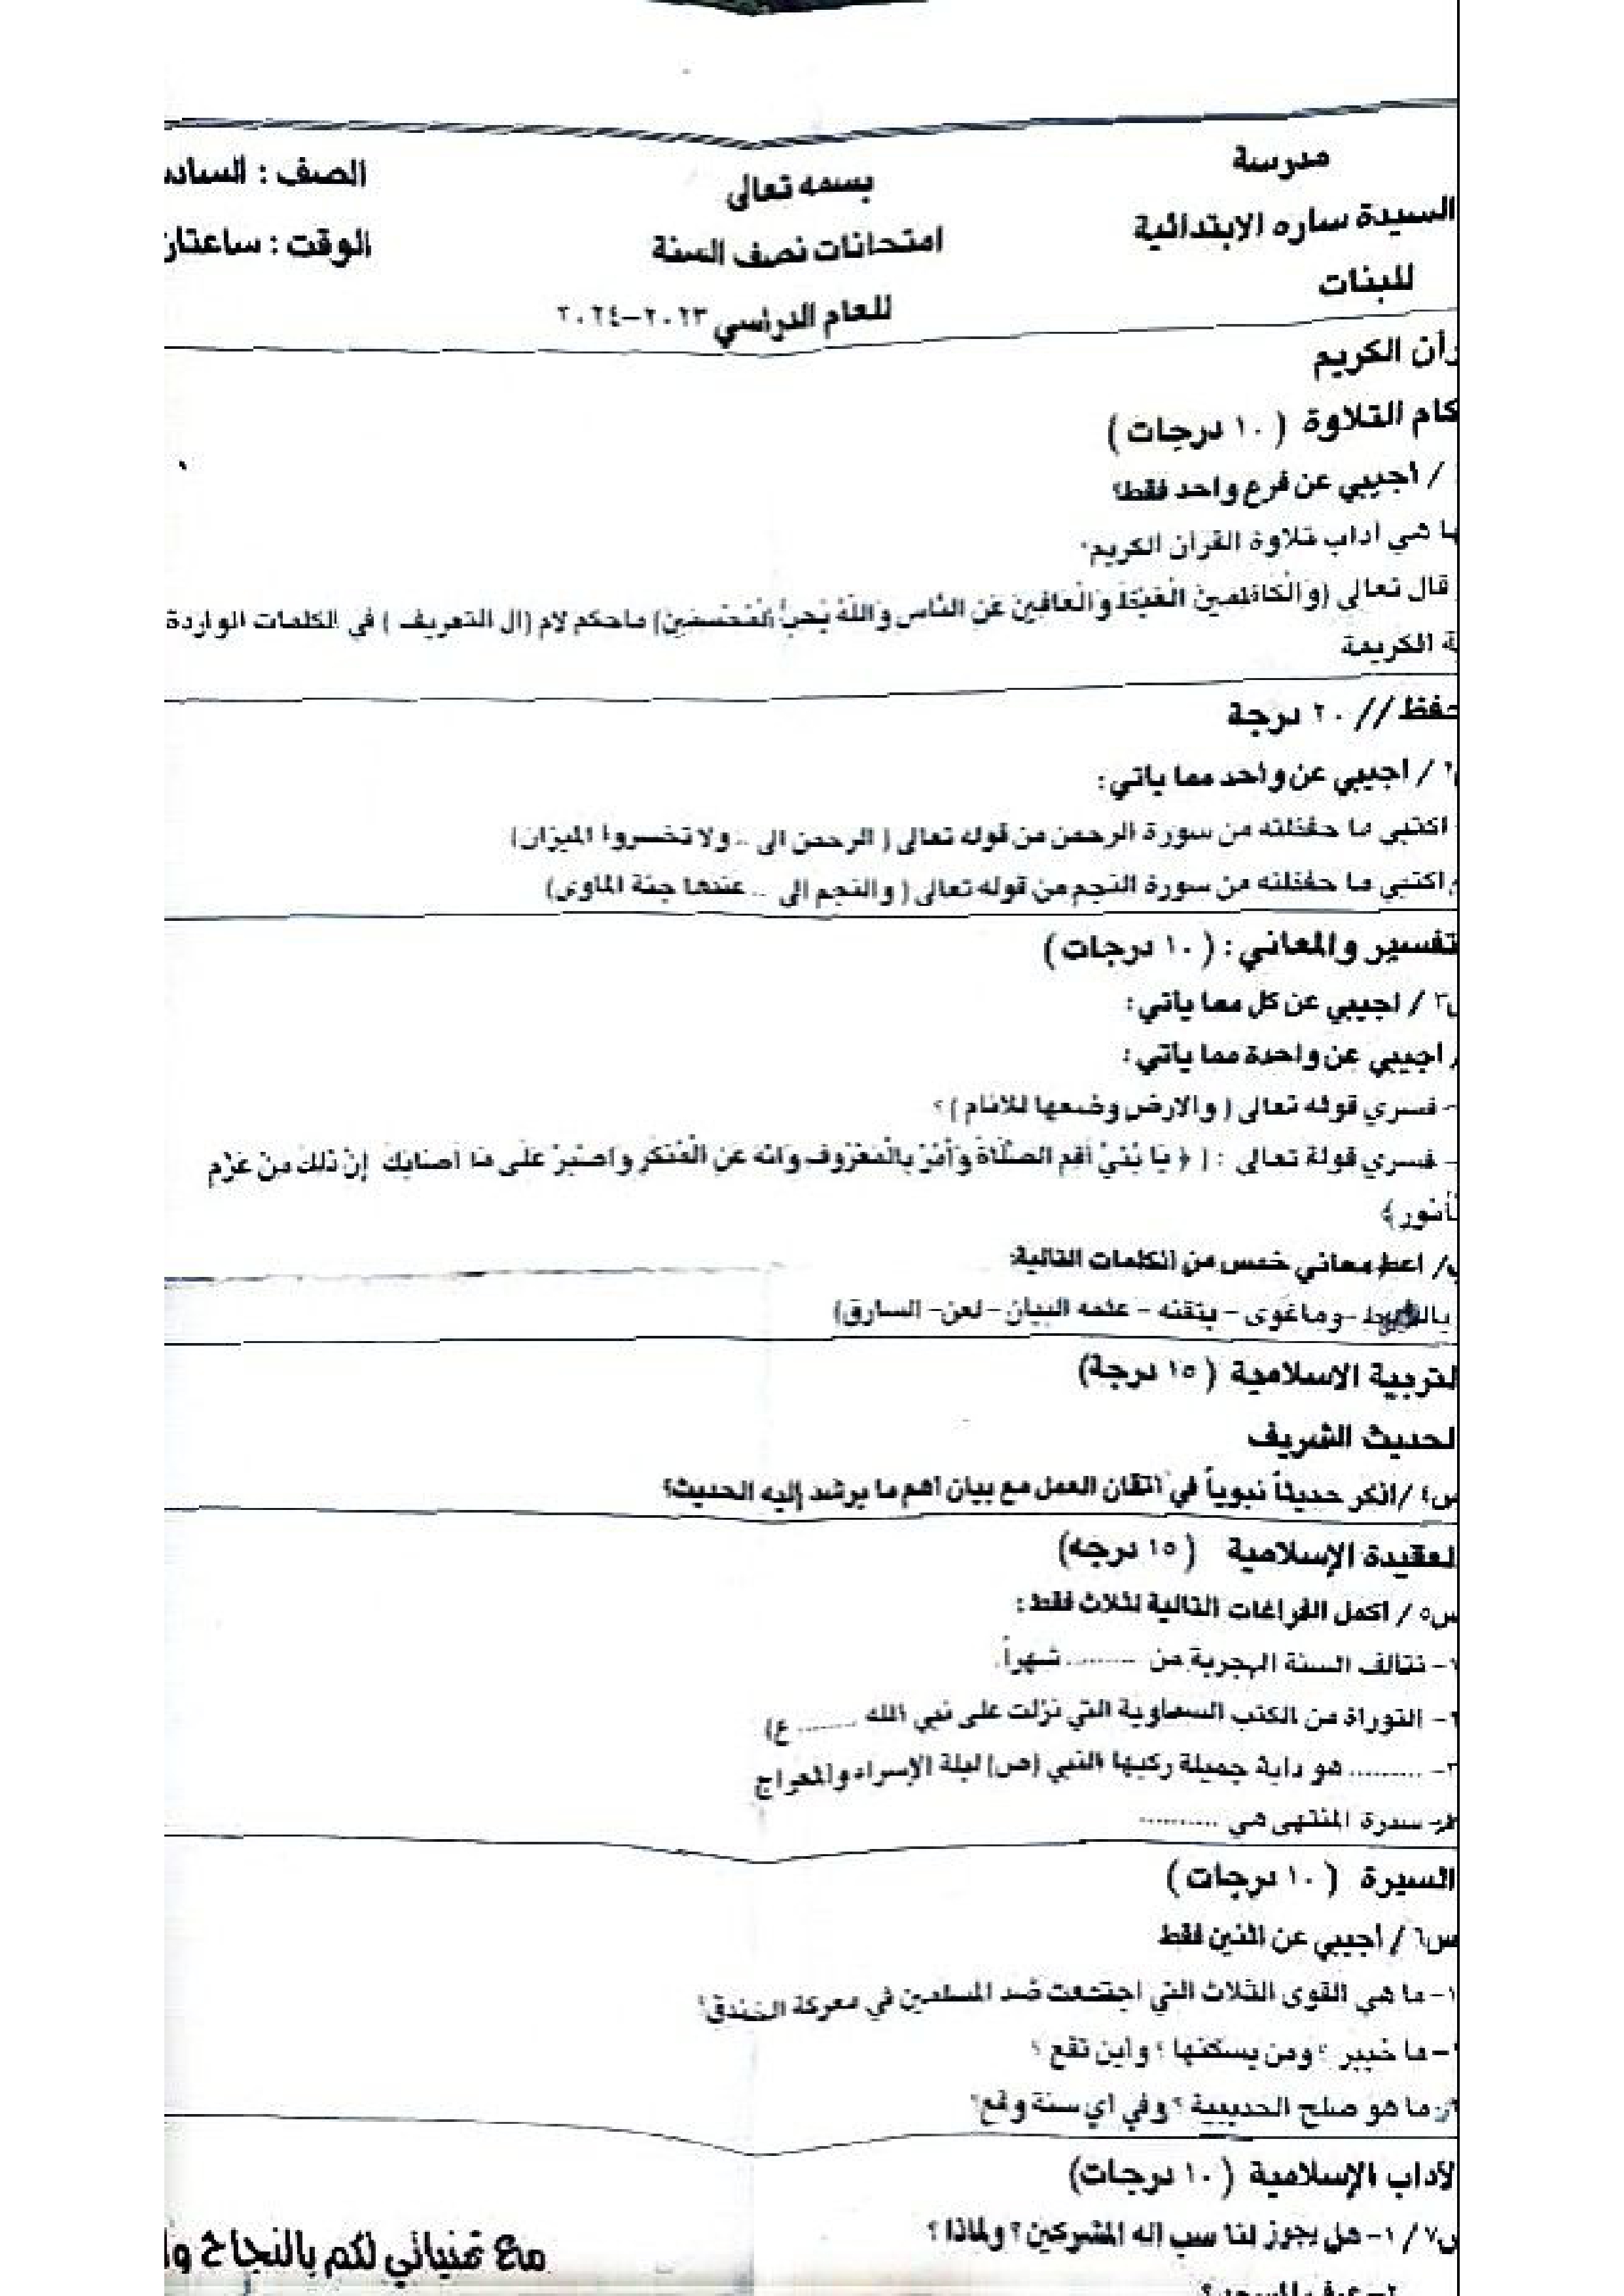 مدرسة
السيدة ساره الابتدائية
للبنات
بسمه تعالى
امتحانات نصف السنة
للعام الدراسي ٢٠٢٣-٢٠٢٤
الصف : الساد
الوقت : ساعتان
رأن الكريم
كام التلاوة ( ١٠ درجات )
/ اجيبي عن فرع واحد فقط؟
ما هي اداب تلاوة القران الكريم؟
قال تعالى (وَالْكَاظِمِينَ الْغَيْظَ وَالْعَافِينَ عَنِ النَّاسِ وَاللَّهُ يُحِبُّ الْمُحْسِنِينَ) ماحكم لام (ال التعريف ) في الكلمات الواردة
ية الكريمة
حفظ // ٢٠ درجة
٢ / اجيبي عن واحد مما ياتي:
اكتبي ما حفظته من سورة الرحمن من قوله تعالى ( الرحمن الى .. ولا تخسروا الميزان)
اكتبي ما حفظته من سورة النجم من قوله تعالى ( والنجم الى .. عندها جنة الماوى)
تفسير والمعاني : ( ١٠ درجات )
س٣ / اجيبي عن كل مما يأتي :
اجيبي عن واحدة مما يأتي :
- فسري قوله تعالى ( والارض وضعها للانام ) ؟
- فسري قولة تعالى : ( ﴿ يَا بُنَيَّ أَقِمِ الصَّلَاةَ وَأْمُرْ بِالْمَعْرُوفِ وَانْهَ عَنِ الْمُنْكَرِ وَاصْبِرْ عَلَى مَا أَصَابَكَ إِنَّ ذَلِكَ مِنْ عَزْمِ
لأُمُورِ ﴾
ب/ اعط معاني خمس من الكلمات التالية:
-وماغوى - يتقنه - علمه البيان - لعن- السارق)
لتربية الاسلامية ( ١٥ درجة)
لحديث الشريف
س٤ /اذكر حديثاً نبوياً في اتقان العمل مع بيان اهم ما يرشد إليه الحديث؟
لعقيدة الإسلامية ( ١٥ درجه)
س٥ / اكمل الفراغات التالية لثلاث فقط :
١- تتألف السنة الهجرية من ........ شهراً.
٢- التوراة من الكتب السماوية التي نزلت على نبي الله ........ ع)
٣- ......... هو دابة جميلة ركبها النبي (ص) ليلة الإسراء والمعراج
٤- سدرة المنتهى هي ..........
السيرة ( ١٠ درجات )
س٦ / أجيبي عن اثنين فقط
١- ما هي القوى الثلاث التي اجتمعت ضد المسلمين في معركة الخندق؟
٢- ما خيبر ؟ ومن يسكنها ؟ وأين تقع ؟
٣- ما هو صلح الحديبية ؟ وفي اي سنة وقع؟
لآداب الإسلامية ( ١٠ درجات)
س٧ / ١- هل يجوز لنا سب اله المشركين ؟ ولماذا ؟
٢- عرف المسجد ؟
مع تمنياتي لكم بالنجاح وا